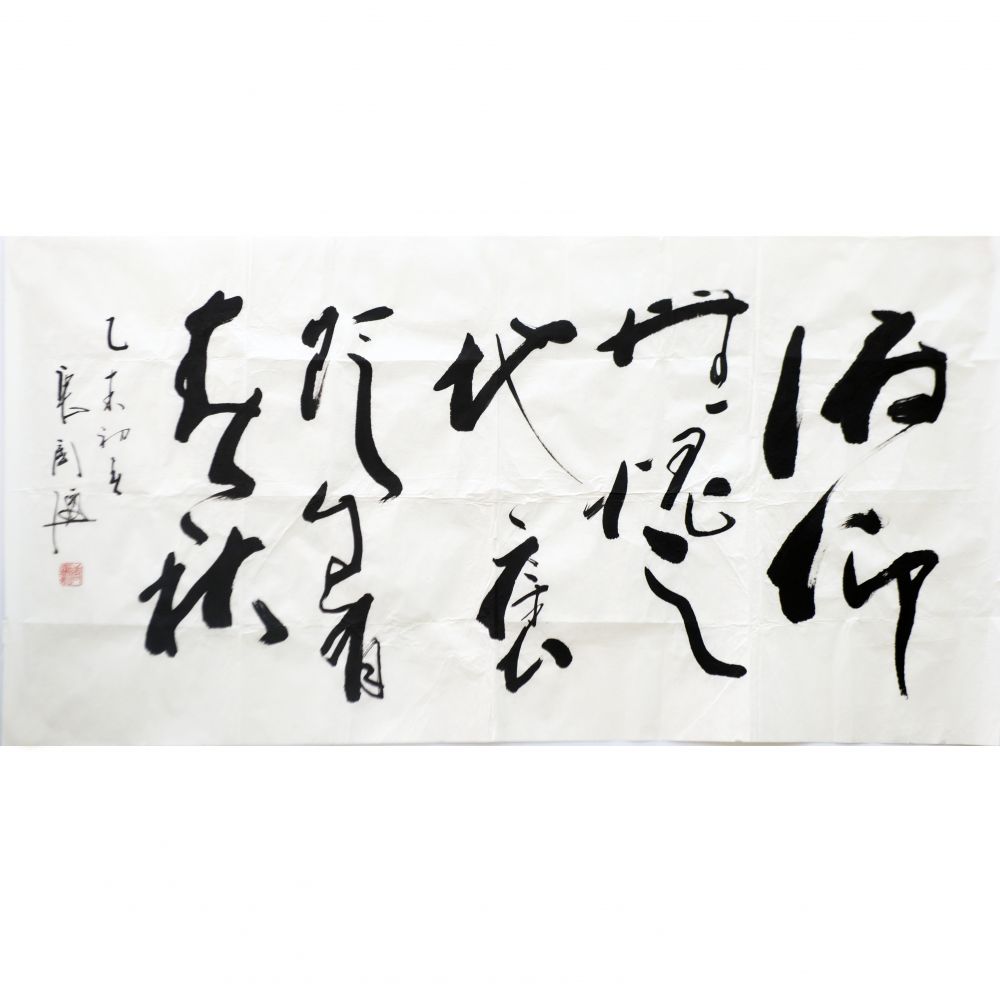 俯仰
無愧天
地褒
貶自有
春秋
乙未初春